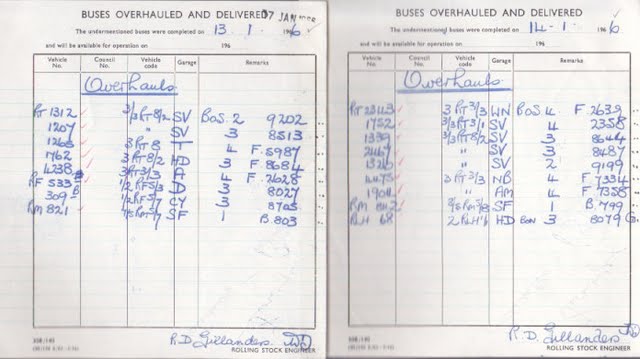 BUSES OVERHAULED AND DELIVERED
The undermentioned buses were completed on 13 . 1 . 196 6
and will be available for operation on 196
Vehicle No. Council No. Vehicle code Garage Remarks
Overhauls
RT 1312 3/3 RT 8/2 SV BoS. 2 9202
1207 " SV 3 8513
3 RT 8 T 4 F. 5987
1762 3 RT 8/2 HD 3 F. 8684
4238 3 RT 3/3 A 4 F. 2628
RF 533 1/2 RF 5/3 D 3 8027
309 B CY 3
RM 821 SF 1 B. 803
R.D. Gillanders
ROLLING STOCK ENGINEER
BUSES OVERHAULED AND DELIVERED
The undermentioned buses were completed on 14 - 1 - 196 6
and will be available for operation on 196
Vehicle No. Council No. Vehicle code Garage Remarks
Overhauls
RT 3 RT 3/3 WN BoS 4 F. 2639
1752 3/3 RT 3/1 SV 4 2358
1339 3/3 RT 8/2 SV 3
" SV 3 8487
" SV 2 9199
3 RT 3/3 NB 4 F. 7334
" AM 4 F. 7358
RM SF 1 B. 799
HD BoS 3 8079
R.D. Gillanders
ROLLING STOCK ENGINEER